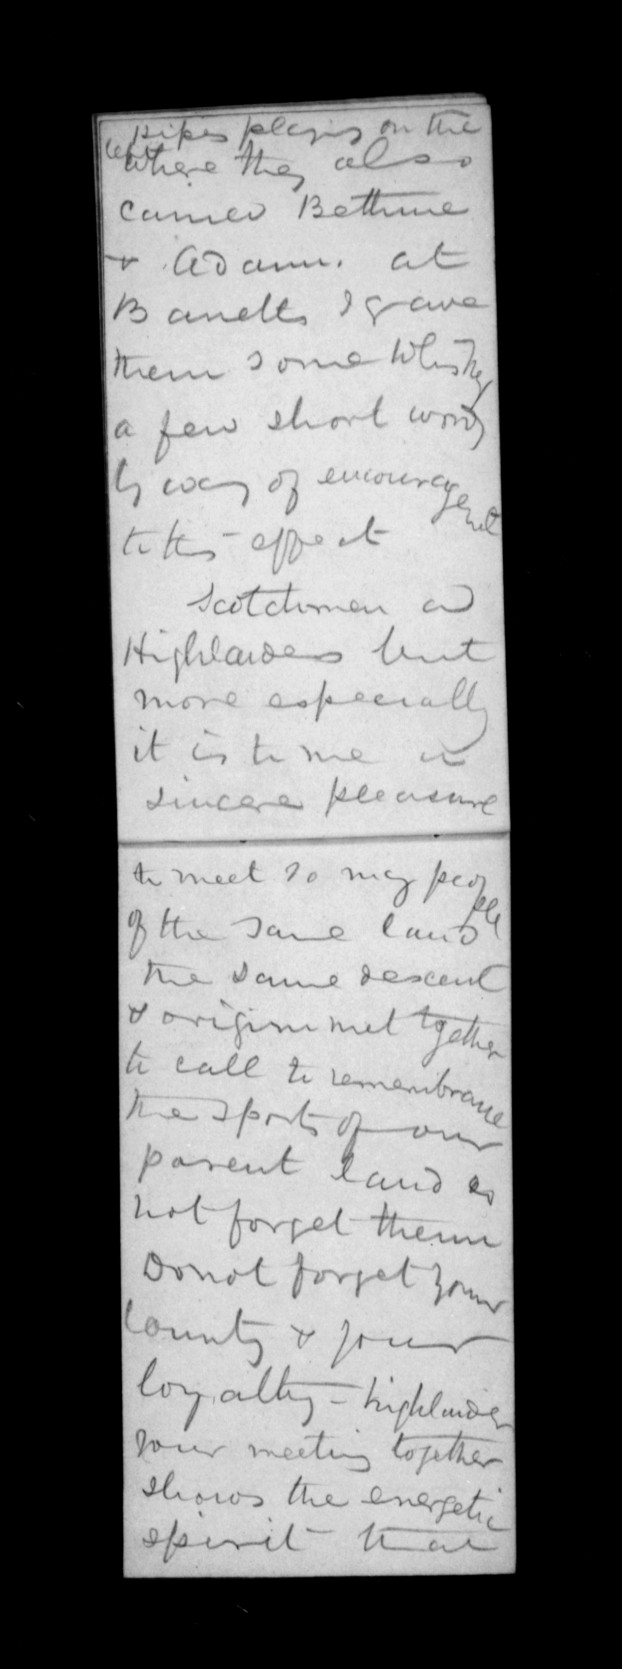 pipes playing on the
left where they also
carried Bethune
& Adam. at
Banetts I gave
them some Whiskey
a few short words
by way of encouragemt
to this effect
Scotchmen and
Highlanders but
more especially
it is to me a
sincere pleasure
to meet so many people
of the same land
the same descent
& origin met together
to call to remembrance
the sports of our
parent land do
not forget them
Do not forget your
County & your
loyalty - highlander
your meeting together
shows the energetic
spirit that